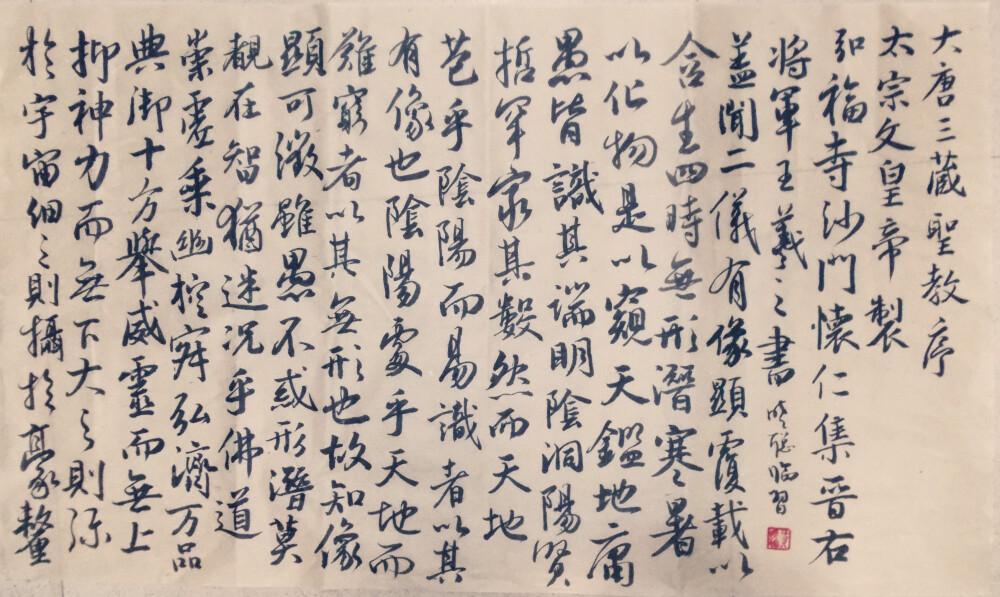 大唐三藏聖教序
太宗文皇帝製
弘福寺沙門懷仁集晉右
將軍王羲之書 臨習
蓋聞二儀有像顯覆載以
含生四時無形潛寒暑
以化物是以窺天鑑地庸
愚皆識其端明陰洞陽賢
哲罕窮其數然而天地
苞乎陰陽而易識者以其
有像也陰陽處乎天地而
難窮者以其無形也故知像
顯可徵雖愚不惑形潛莫
覩在智猶迷況乎佛道
崇虛乘幽控寂弘濟万品
典御十方舉威靈而無上
抑神力而無下大之則弥
於宇宙細之則攝於豪釐